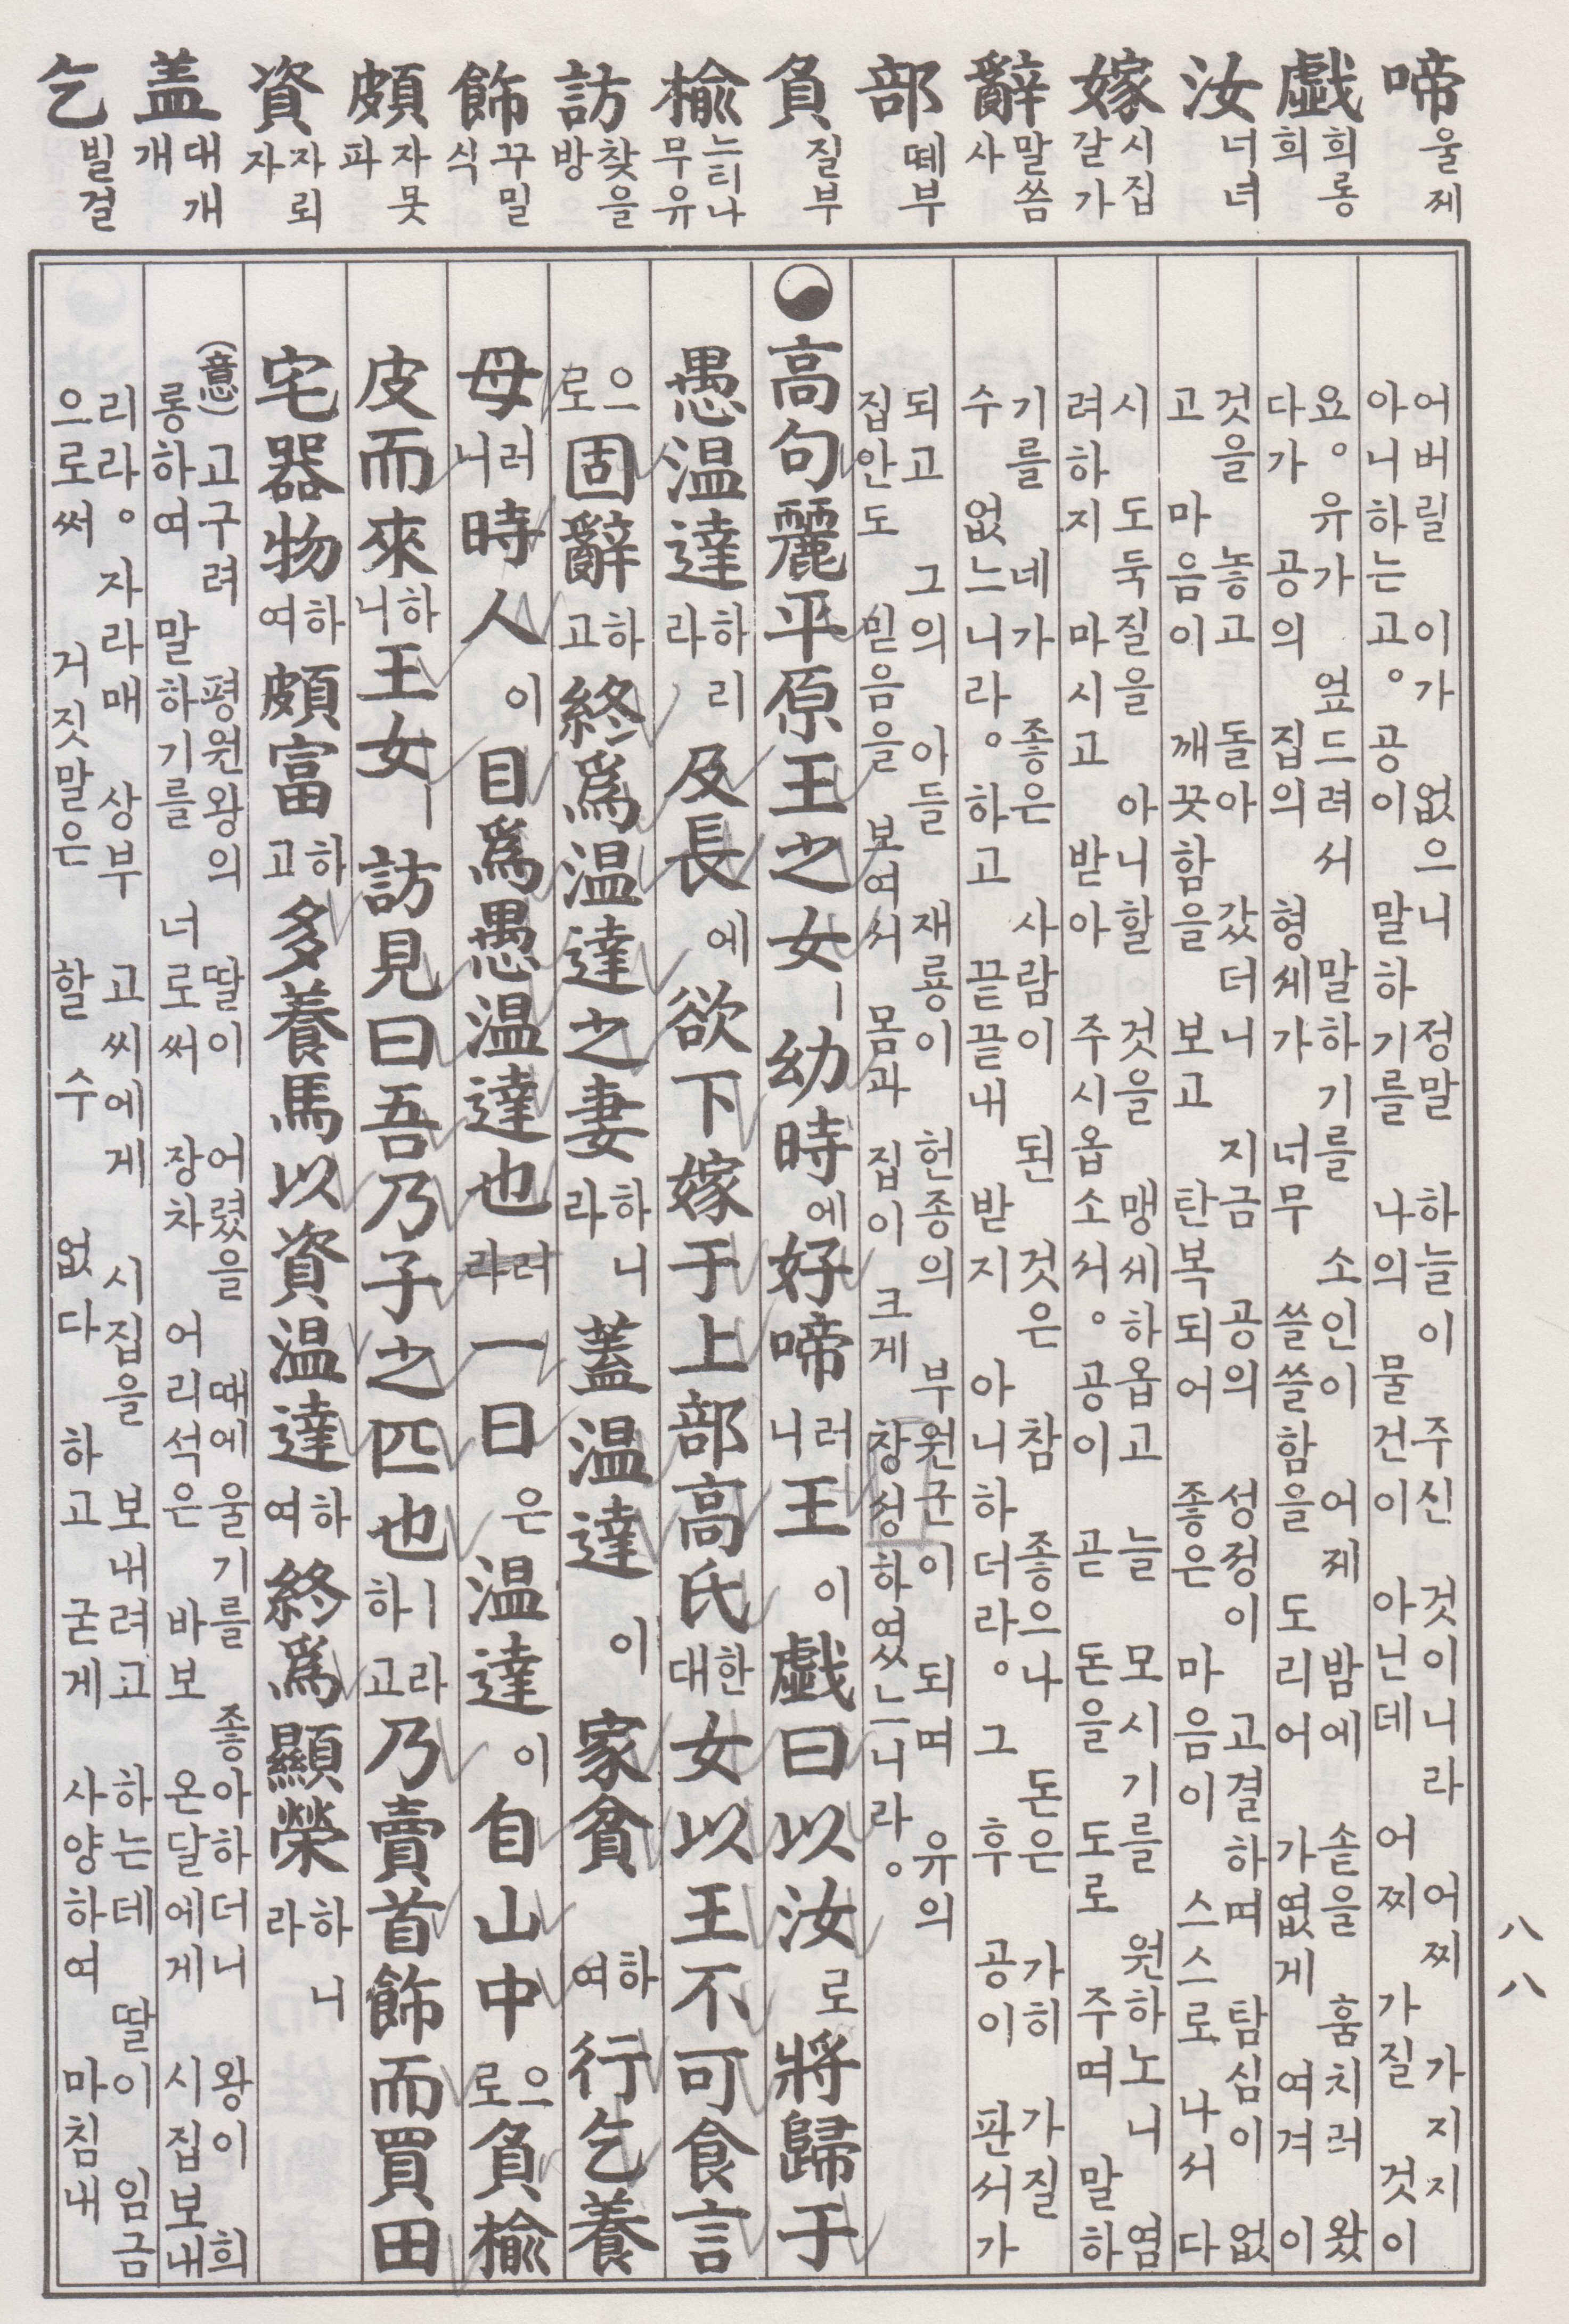 啼 울 제
戱 희롱 희
汝 너 녀
嫁 시집갈 가
辭 말씀 사
部 떼 부
負 질 부
楡 느티나무 유
訪 찾을 방
飾 꾸밀 식
頗 자못 파
資 자뢰 자
盖 대개 개
乞 빌 걸
어버릴 이가 없으니 정말 하늘이 주신 것이니라 어찌 가지지
아니하는고。 공이 말하기를 나의 물건이 아닌데 어찌 가질 것이
요。 유가 엎드려서 말하기를 소인이 어제 밤에 솥을 훔치러 왔
다가 공의 집의 형세가 너무 쓸쓸함을 도리어 가엾게 여겨 이
것을 놓고 돌아 갔더니 지금 공의 성정이 고결하며 탐심이 없
고 마음이 깨끗함을 보고 탄복되어 좋은 마음이 스스로 나서 다
시 도둑질을 아니할 것을 맹세하옵고 늘 모시기를 원하노니 염
려하지 마시고 받아 주시옵소서。 공이 곧 돈을 도로 주며 말하
기를 네가 좋은 사람이 된 것은 참 좋으나 돈은 가히 가질
수 없느니라。 하고 끝끝내 받지 아니하더라。 그 후 공이 판서가
되고 그의 아들 재룡이 헌종의 부원군이 되며 유의
집안도 믿음을 보여서 몸과 집이 크게 창성하였느니라。
高句麗平原王之女ㅣ 幼時에 好啼러니 王이 戱曰以汝로 將歸于
愚温達하리라 及長에 欲下嫁于上部高氏한대 女以王不可食言
으로 固辭하고 終爲温達之妻하니라 蓋温達이 家貧하여 行乞養
母러니 時人이 目爲愚温達也라러 一日은 温達이 自山中으로 負楡
皮而來하니 王女ㅣ 訪見曰吾乃子之匹也ㅣ라하고 乃賣首飾而買田
宅器物하여 頗富하고 多養馬以資温達하여 終爲顯榮하니라
(意) 고구려 평원왕의 딸이 어렸을 때에 울기를 좋아하더니 왕이 희
롱하여 말하기를 너로써 장차 어리석은 바보 온달에게 시집 보내
리라。 자라매 상부 고씨에게 시집을 보내려고 하는데 딸이 임금
으로써 거짓말은 할 수 없다 하고 굳게 사양하여 마침내
八八